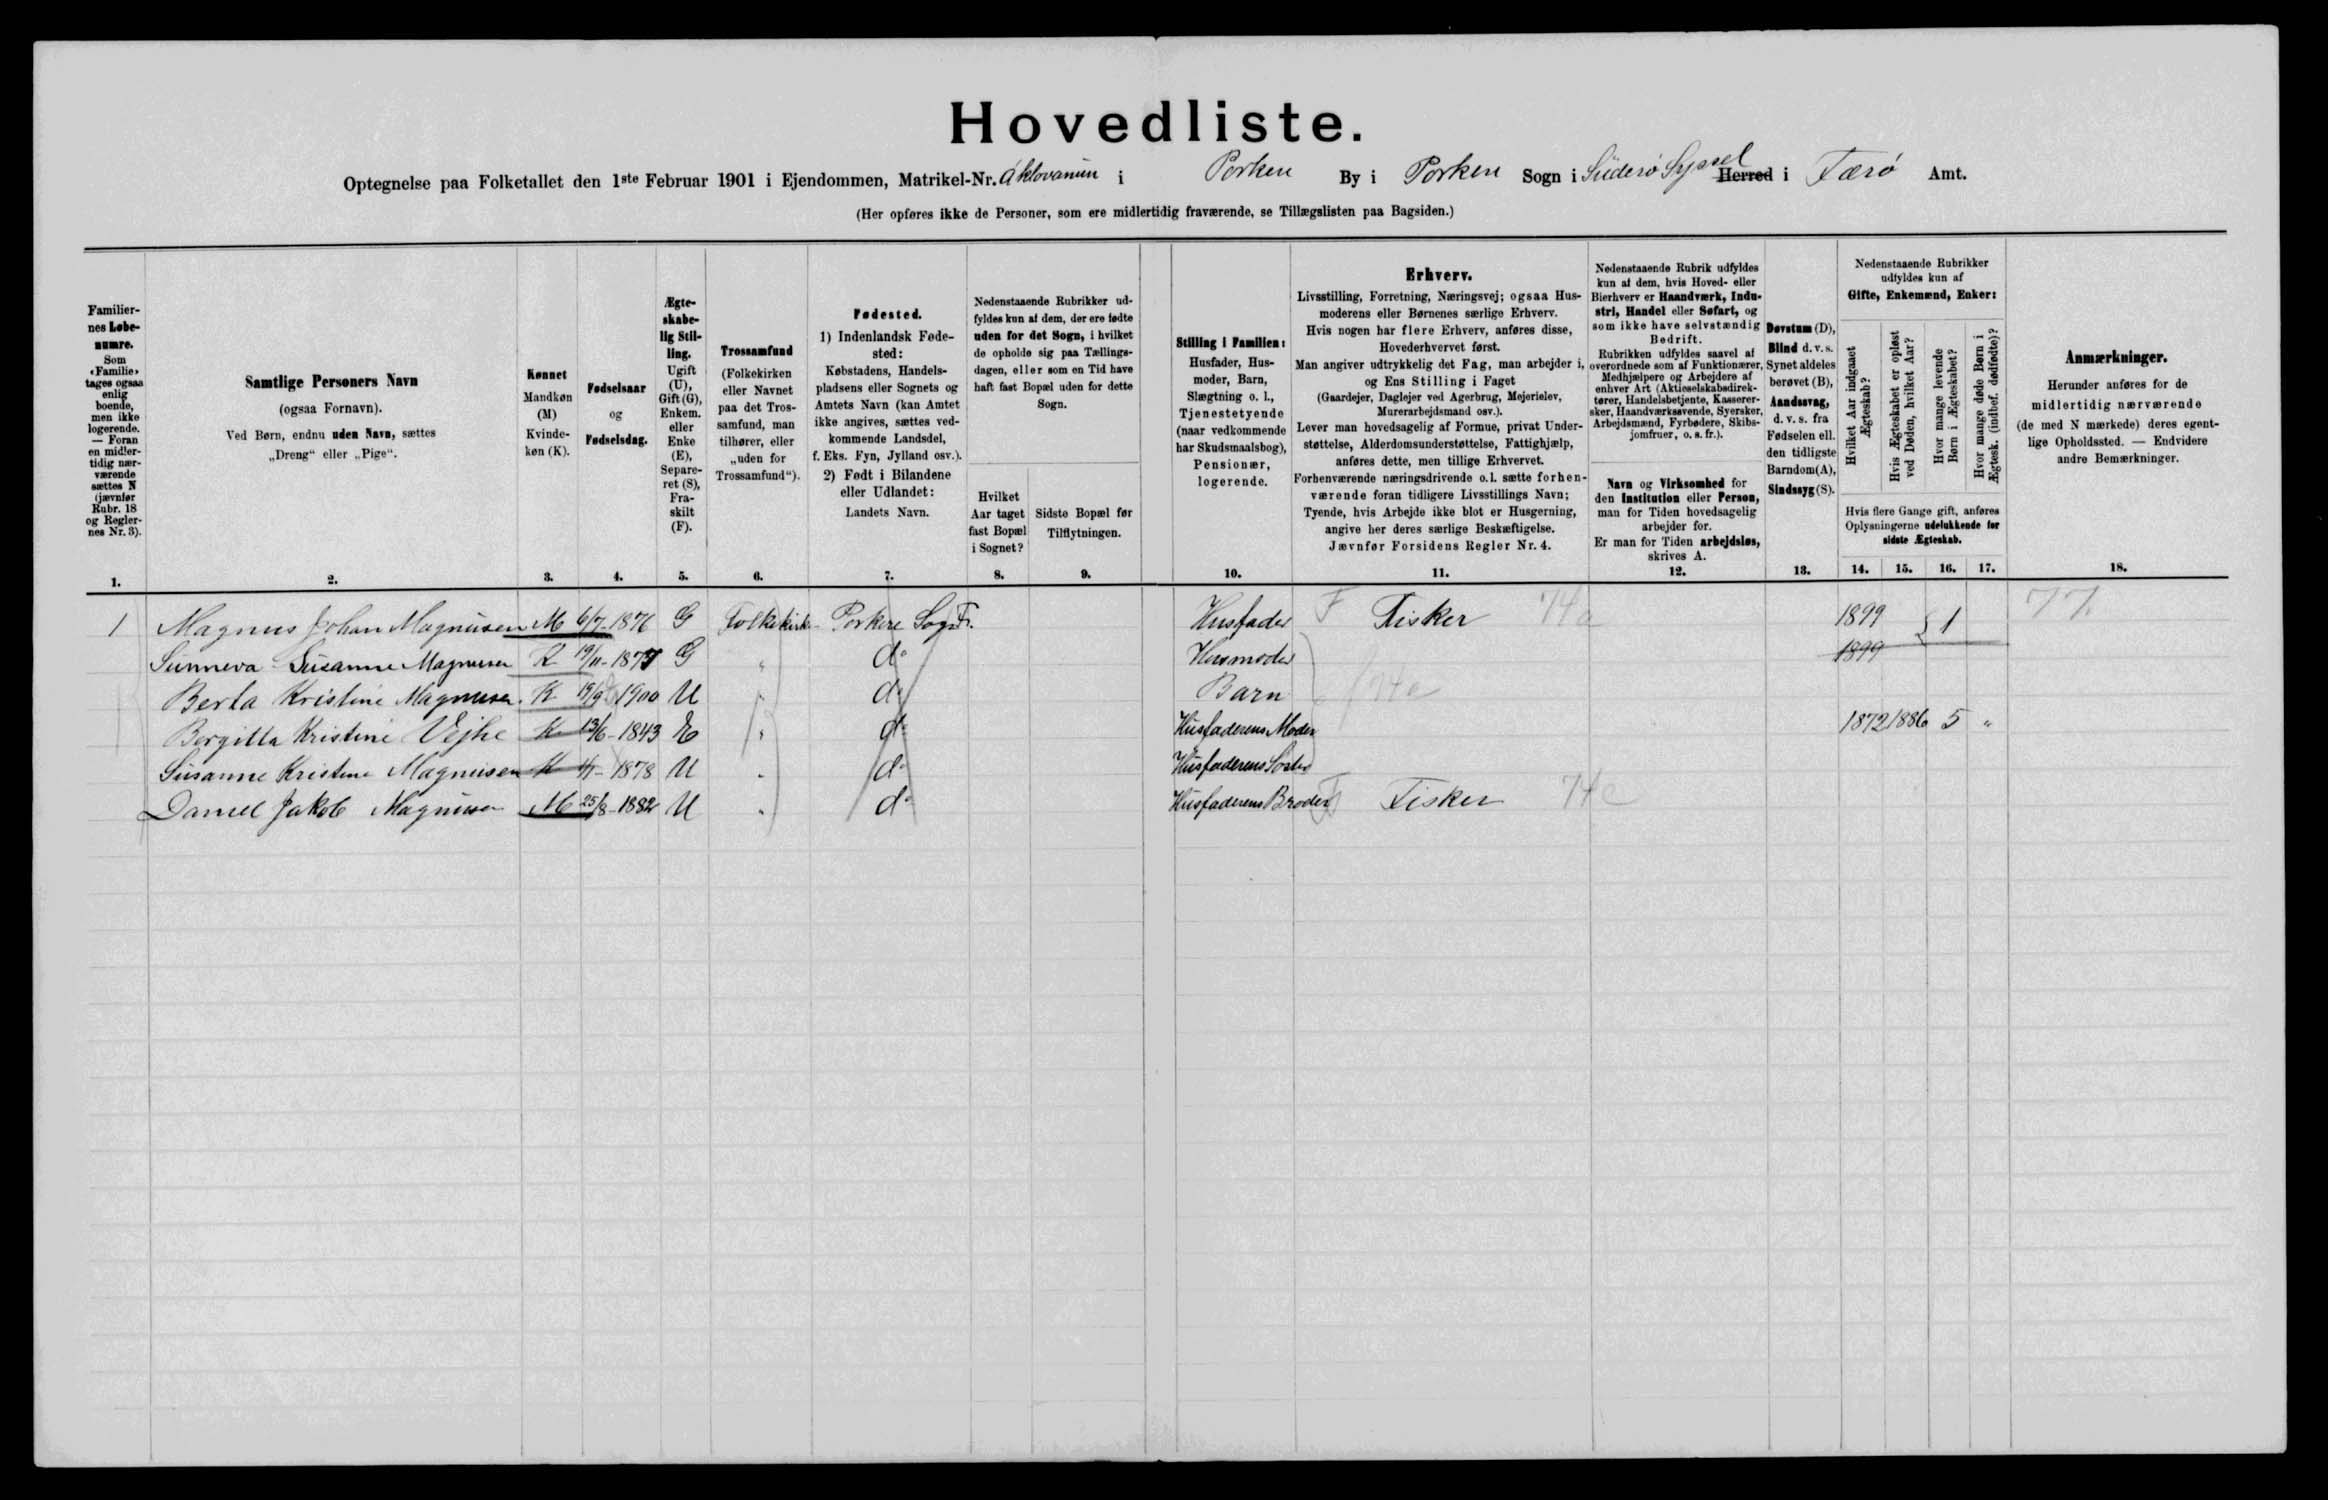 Hovedliste.
Optegnelse paa Folketallet den 1ste Februar 1901 i Ejendommen, Matrikel-Nr. i Porkere By i Porkere Sogn i Süderø Syssel Herred i Færø Amt.
(Her opføres ikke de Personer, som ere midlertidig fraværende, se Tillægslisten paa Bagsiden.)
Familier-
nes Løbe-
numre.
Som
«Familie»
tages ogsaa
enlig
boende,
men ikke
logerende.
— Foran
en midler-
tidig nær-
værende
sættes N
(jævnfør
Rubr. 18
og Regler-
nes Nr. 3).
1.
Samtlige Personers Navn
(ogsaa Fornavn).
Ved Børn, endnu uden Navn, sættes
„Dreng“ eller „Pige“.
2.
Kønnet
Mandkøn
(M)
Kvinde-
køn (K).
3.
Fødselsaar
og
Fødselsdag.
4.
Ægte-
skabe-
lig Stil-
ling.
Ugift
(U),
Gift (G),
Enkem.
eller
Enke
(E),
Separe-
ret (S),
Fra-
skilt
(F).
5.
Trossamfund
(Folkekirken
eller Navnet
paa det Tros-
samfund, man
tilhører, eller
„uden for
Trossamfund“).
6.
Fødested.
1) Indenlandsk Føde-
sted:
Købstadens, Handels-
pladsens eller Sognets og
Amtets Navn (kan Amtet
ikke angives, sættes ved-
kommende Landsdel,
f. Eks. Fyn, Jylland osv.).
2) Født i Bilandene
eller Udlandet:
Landets Navn.
7.
Nedenstaaende Rubrikker ud-
fyldes kun af dem, der ere fødte
uden for det Sogn, i hvilket
de opholde sig paa Tællings-
dagen, eller som en Tid have
haft fast Bopæl uden for dette
Sogn.
Hvilket
Aar taget
fast Bopæl
i Sognet?
8.
Sidste Bopæl før
Tilflytningen.
9.
Stilling i Familien:
Husfader, Hus-
moder, Barn,
Slægtning o. l.,
Tjenestetyende
(naar vedkommende
har Skudsmaalsbog),
Pensionær,
logerende.
10.
Erhverv.
Livsstilling, Forretning, Næringsvej; ogsaa Hus-
moderens eller Børnenes særlige Erhverv.
Hvis nogen har flere Erhverv, anføres disse,
Hovederhvervet først.
Man angiver udtrykkelig det Fag, man arbejder i,
og Ens Stilling i Faget
(Gaardejer, Daglejer ved Agerbrug, Mejerielev,
Murerarbejdsmand osv.).
Lever man hovedsagelig af Formue, privat Under-
støttelse, Alderdomsunderstøttelse, Fattighjælp,
anføres dette, men tillige Erhvervet.
Forhenværende næringsdrivende o. l. sætte forhen-
værende foran tidligere Livsstillings Navn;
Tyende, hvis Arbejde ikke blot er Husgerning,
angive her deres særlige Beskæftigelse.
Jævnfør Forsidens Regler Nr. 4.
11.
Nedenstaaende Rubrik udfyldes
kun af dem, hvis Hoved- eller
Bierhverv er Haandværk, Indu-
stri, Handel eller Søfart, og
som ikke have selvstændig
Bedrift.
Rubrikken udfyldes saavel af
overordnede som af Funktionærer,
Medhjælpere og Arbejdere af
enhver Art (Aktieselskabsdirek-
tører, Handelsbetjente, Kasserer-
sker, Haandværkssvende, Syersker,
Arbejdsmænd, Fyrbødere, Skibs-
jomfruer, o. s. fr.).
Navn og Virksomhed for
den Institution eller Person,
man for Tiden hovedsagelig
arbejder for.
Er man for Tiden arbejdsløs,
skrives A.
12.
Døvstum (D),
Blind d. v. s.
Synet aldeles
berøvet (B),
Aandssvag,
d. v. s. fra
Fødselen ell.
den tidligste
Barndom (A),
Sindssyg (S).
13.
Nedenstaaende Rubrikker
udfyldes kun af
Gifte, Enkemænd, Enker:
Hvilket Aar indgaaet
Ægteskab?
Hvis Ægteskabet er opløst
ved Døden, hvilket Aar?
Hvor mange levende
Børn i Ægteskabet?
Hvor mange døde Børn i
Ægtesk. (indbef. dødfødte)?
Hvis flere Gange gift, anføres
Oplysningerne udelukkende for
sidste Ægteskab.
14. 15. 16. 17.
Anmærkninger.
Herunder anføres for de
midlertidig nærværende
(de med N mærkede) deres egent-
lige Opholdssted. — Endvidere
andre Bemærkninger.
18.
1 Magnus Johan Magnusen M 6/7-1876 G Folkekirk. Porkere Sogn Husfader F Fisker 74a 1899 1 77.
Sunneva Susanne Magnusen K 19/11- G " do Husmoder 1899
Berta Kristine Magnusen K 19/9 1900 U " do Barn 74a
Bergitta Kristine Vejhe K 13/6-1843 E " do Husfaderens Moder 1872 1886 5 "
Susanne Kristine Magnusen K 1878 U " do Husfaderens Søster
Daniel Jakob Magnusen M 25/8-1882 U " do Husfaderens Broder F Fisker 74c